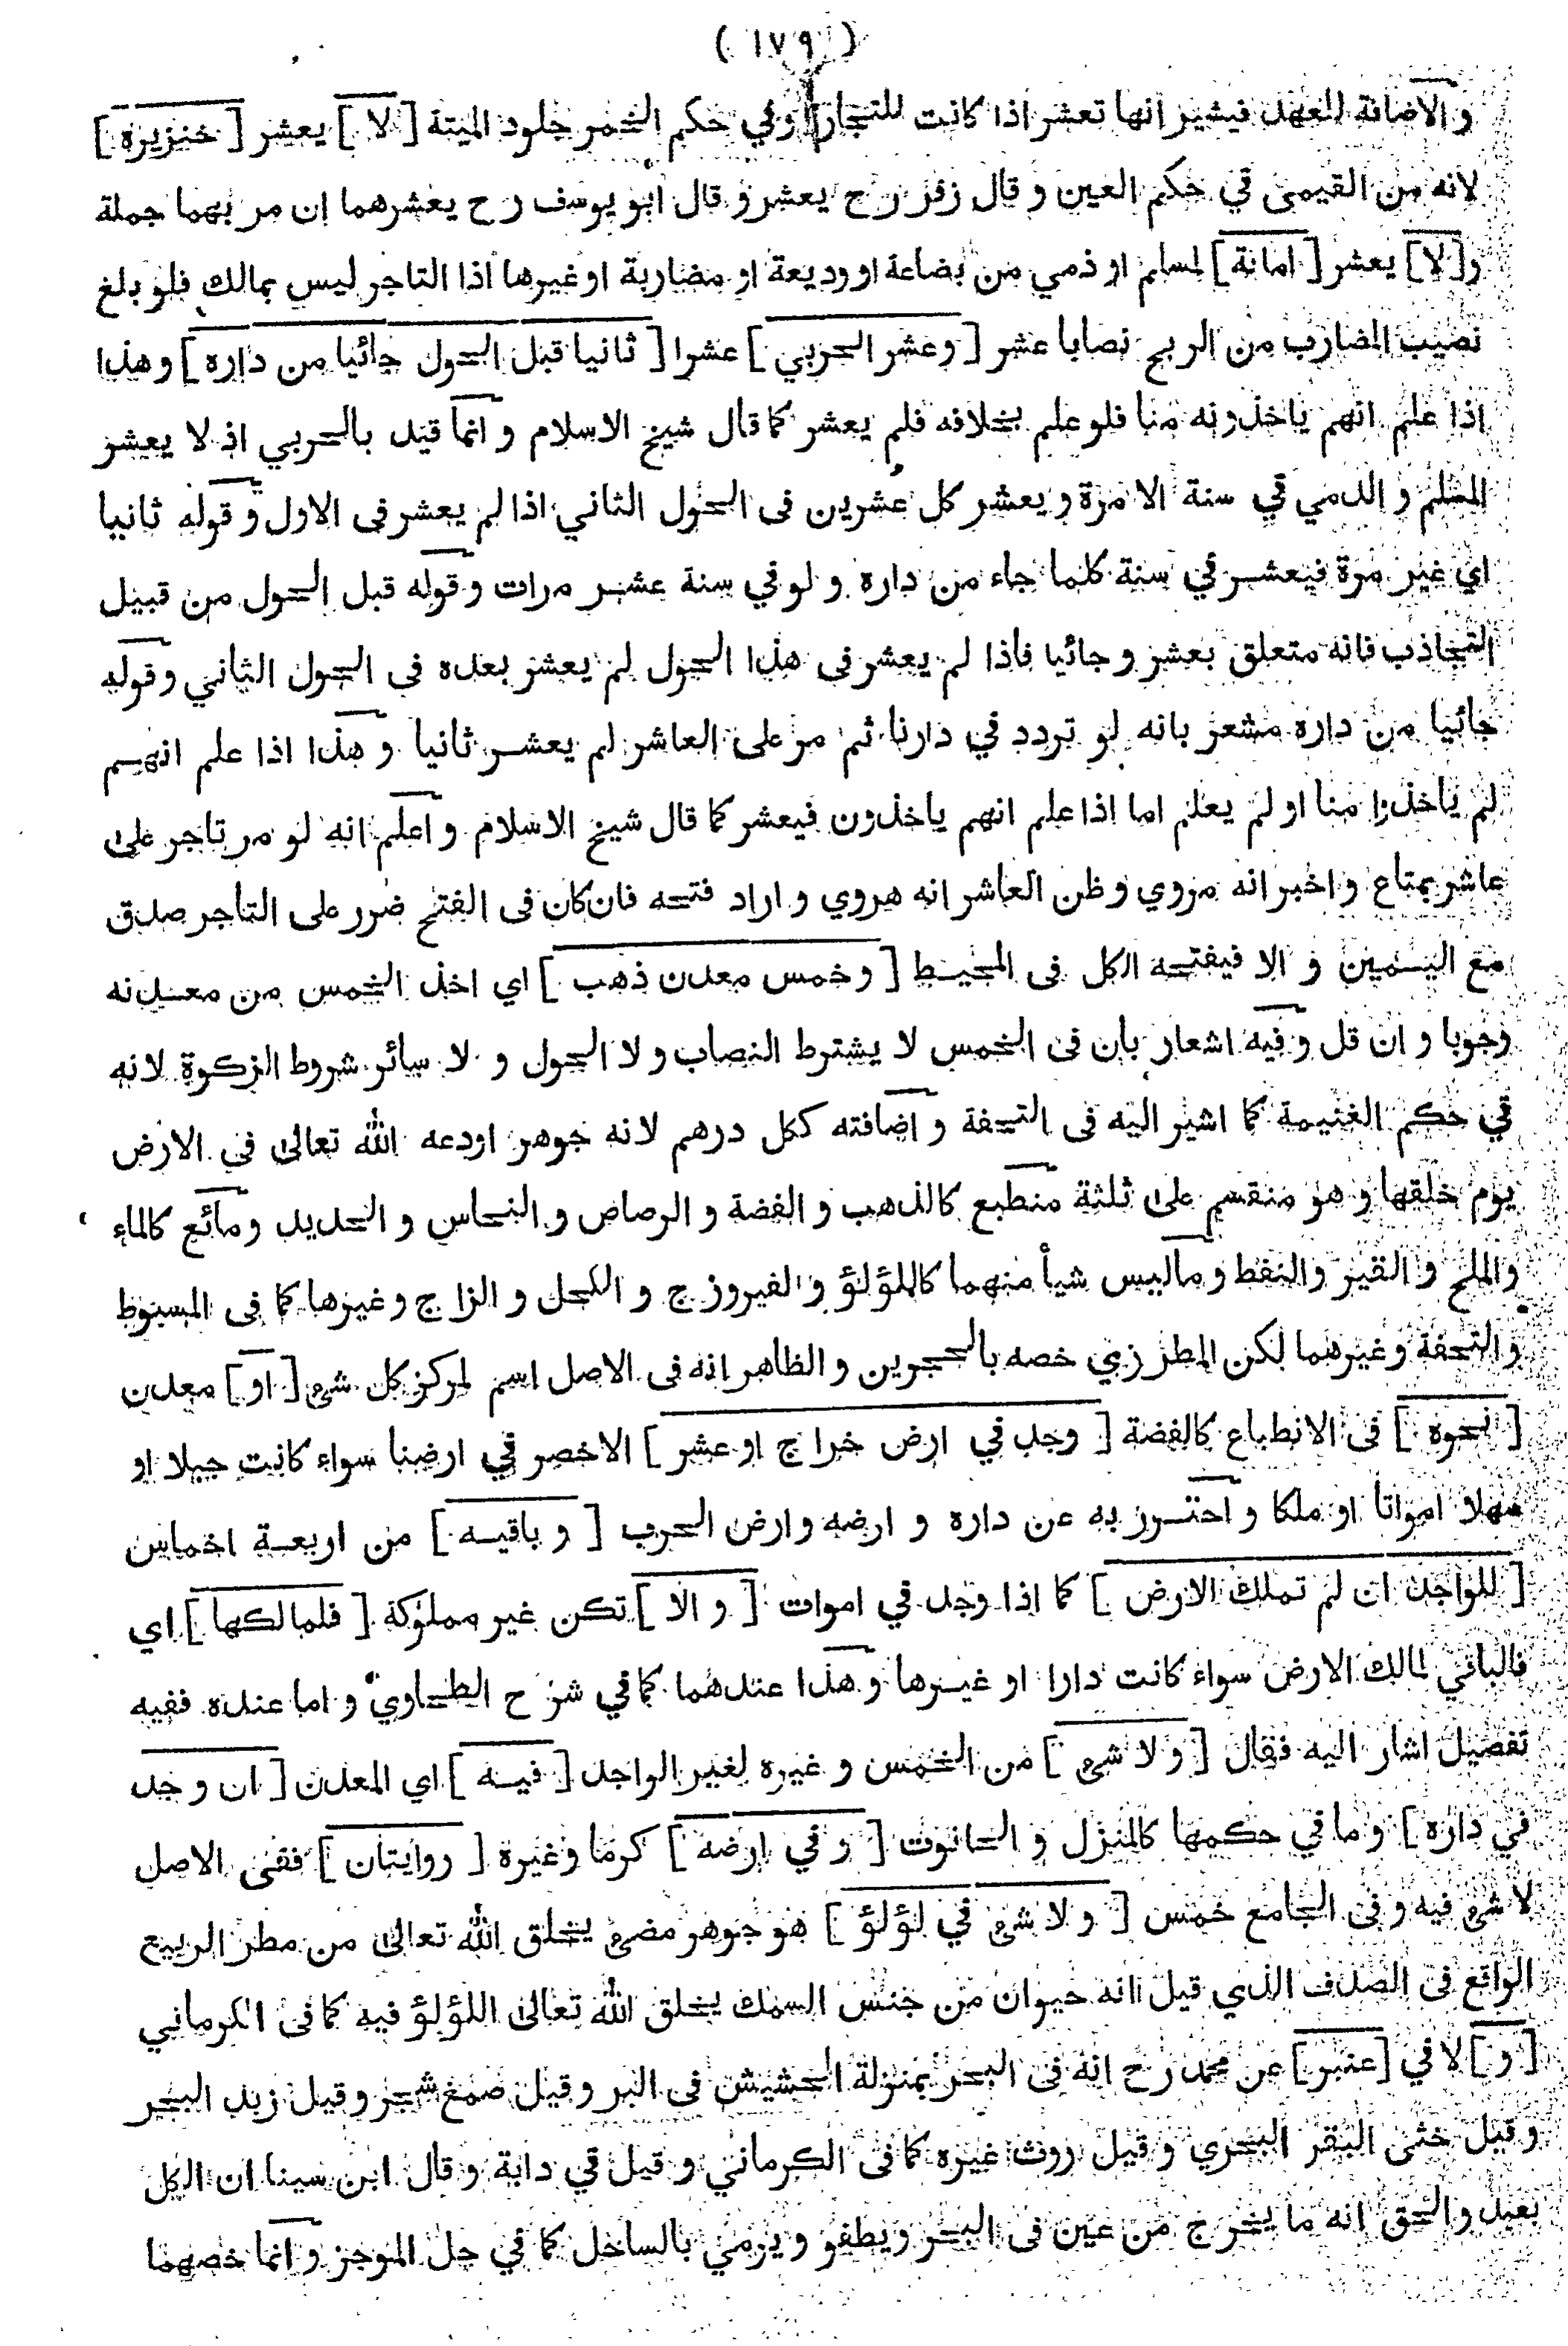 ( ١٧٩ )
و الاضافة للعهد فيشير انها تعشر اذا كانت للتجارة وفي حكم الخمر جلود الميتة [ لا ] يعشر [ خنزيره ]
لانه من القيمى في حكم العين و قال زفر رح يعشر و قال ابو يوسف رح يعشرهما ان مر بهما جملة
و[لا] يعشر [ امانة ] لمسلم او ذمي من بضاعة او وديعة او مضاربة او غيرها اذا التاجر ليس بمالك فلو بلغ
نصيب المضارب من الربح نصابا عشر [ وعشر الحربي ] عشرا [ ثانيا قبل الحول جائيا من داره ] وهذا
اذا علم انهم ياخذونه منا فلو علم بخلافه فلم يعشر كما قال شيخ الاسلام و انما قيد بالحربي اذ لا يعشر
المسلم و الذمي في سنة الا مرة و يعشر كل عشرين فى الحول الثاني اذا لم يعشر فى الاول و قوله ثانيا
اي غير مرة فيعشر في سنة كلما جاء من داره و لو في سنة عشر مرات و قوله قبل الحول من قبيل
التجاذب فانه متعلق بعشر و جائيا فاذا لم يعشر فى هذا الحول لم يعشر بعده فى الحول الثاني و قوله
جائيا من داره مشعر بانه لو تردد في دارنا ثم مر على العاشر لم يعشر ثانيا و هذا اذا علم انهم
لم ياخذوا منا او لم يعلم اما اذا علم انهم ياخذون فيعشر كما قال شيخ الاسلام و اعلم انه لو مر تاجر على
عاشر بمتاع و اخبر انه مروي و ظن العاشر انه هروي و اراد فتحه فان كان فى الفتح ضرر على التاجر صدق
مع اليمين و الا فيفتحه الكل فى المحيط [ و خمس معدن ذهب ] اي اخذ الخمس من معدنه
وجوبا و ان قل و فيه اشعار بان فى الخمس لا يشترط النصاب و لا الحول و لا سائر شروط الزكوة لانه
في حكم الغنيمة كما اشير اليه فى التحفة و اضافته ككل درهم لانه جوهر اودعه الله تعالى فى الارض
يوم خلقها و هو منقسم على ثلثة منطبع كالذهب و الفضة و الرصاص و النحاس و الحديد و مائع كالماء
والملح و القير والنفط و ماليس شيأ منهما كاللؤلؤ و الفيروزج و الكحل و الزاج وغيرها كما فى المبسوط
و التحفة وغيرهما لكن المطرزي خصه بالحجرين و الظاهر انه فى الاصل اسم لمركز كل شئ [ او ] معدن
[ نحوه ] فى الانطباع كالفضة [ وجد في ارض خراج او عشر ] الاخصر في ارضنا سواء كانت جبلا او
سهلا امواتا او ملكا و احترز به عن داره و ارضه وارض الحرب [ و باقيه ] من اربعة اخماس
[ للواجد ان لم تملك الارض ] كما اذا وجد في اموات [ و الا ] تكن غير مملوكة [ فلمالكها ] اي
فالباقي لمالك الارض سواء كانت دارا او غيرها و هذا عندهما كما في شرح الطحاوي و اما عنده ففيه
تفصيل اشار اليه فقال [ و لا شئ ] من الخمس و غيره لغير الواجد [ فيه ] اي المعدن [ ان وجد
في داره ] و ما في حكمها كالمنزل و الحانوت [ و في ارضه ] كرما وغيره [ روايتان ] ففى الاصل
لا شئ فيه و فى الجامع خمس [ و لا شئ في لؤلؤ ] هو جوهر مضئ يخلق الله تعالى من مطر الربيع
الواقع فى الصدف الذي قيل انه حيوان من جنس السمك يخلق الله تعالى اللؤلؤ فيه كما فى الكرماني
[ و ] لا في [ عنبر ] عن محمد رح انه فى البحر بمنزلة الحشيش فى البر و قيل صمغ شجر و قيل زبد البحر
و قيل خثى البقر البحري و قيل روث غيره كما فى الكرماني و قيل قي دابة و قال ابن سينا ان الكل
بعيد و الحق انه ما يخرج من عين فى البحر و يطفو و يرمي بالساحل كما في حل الموجز و انما خصهما